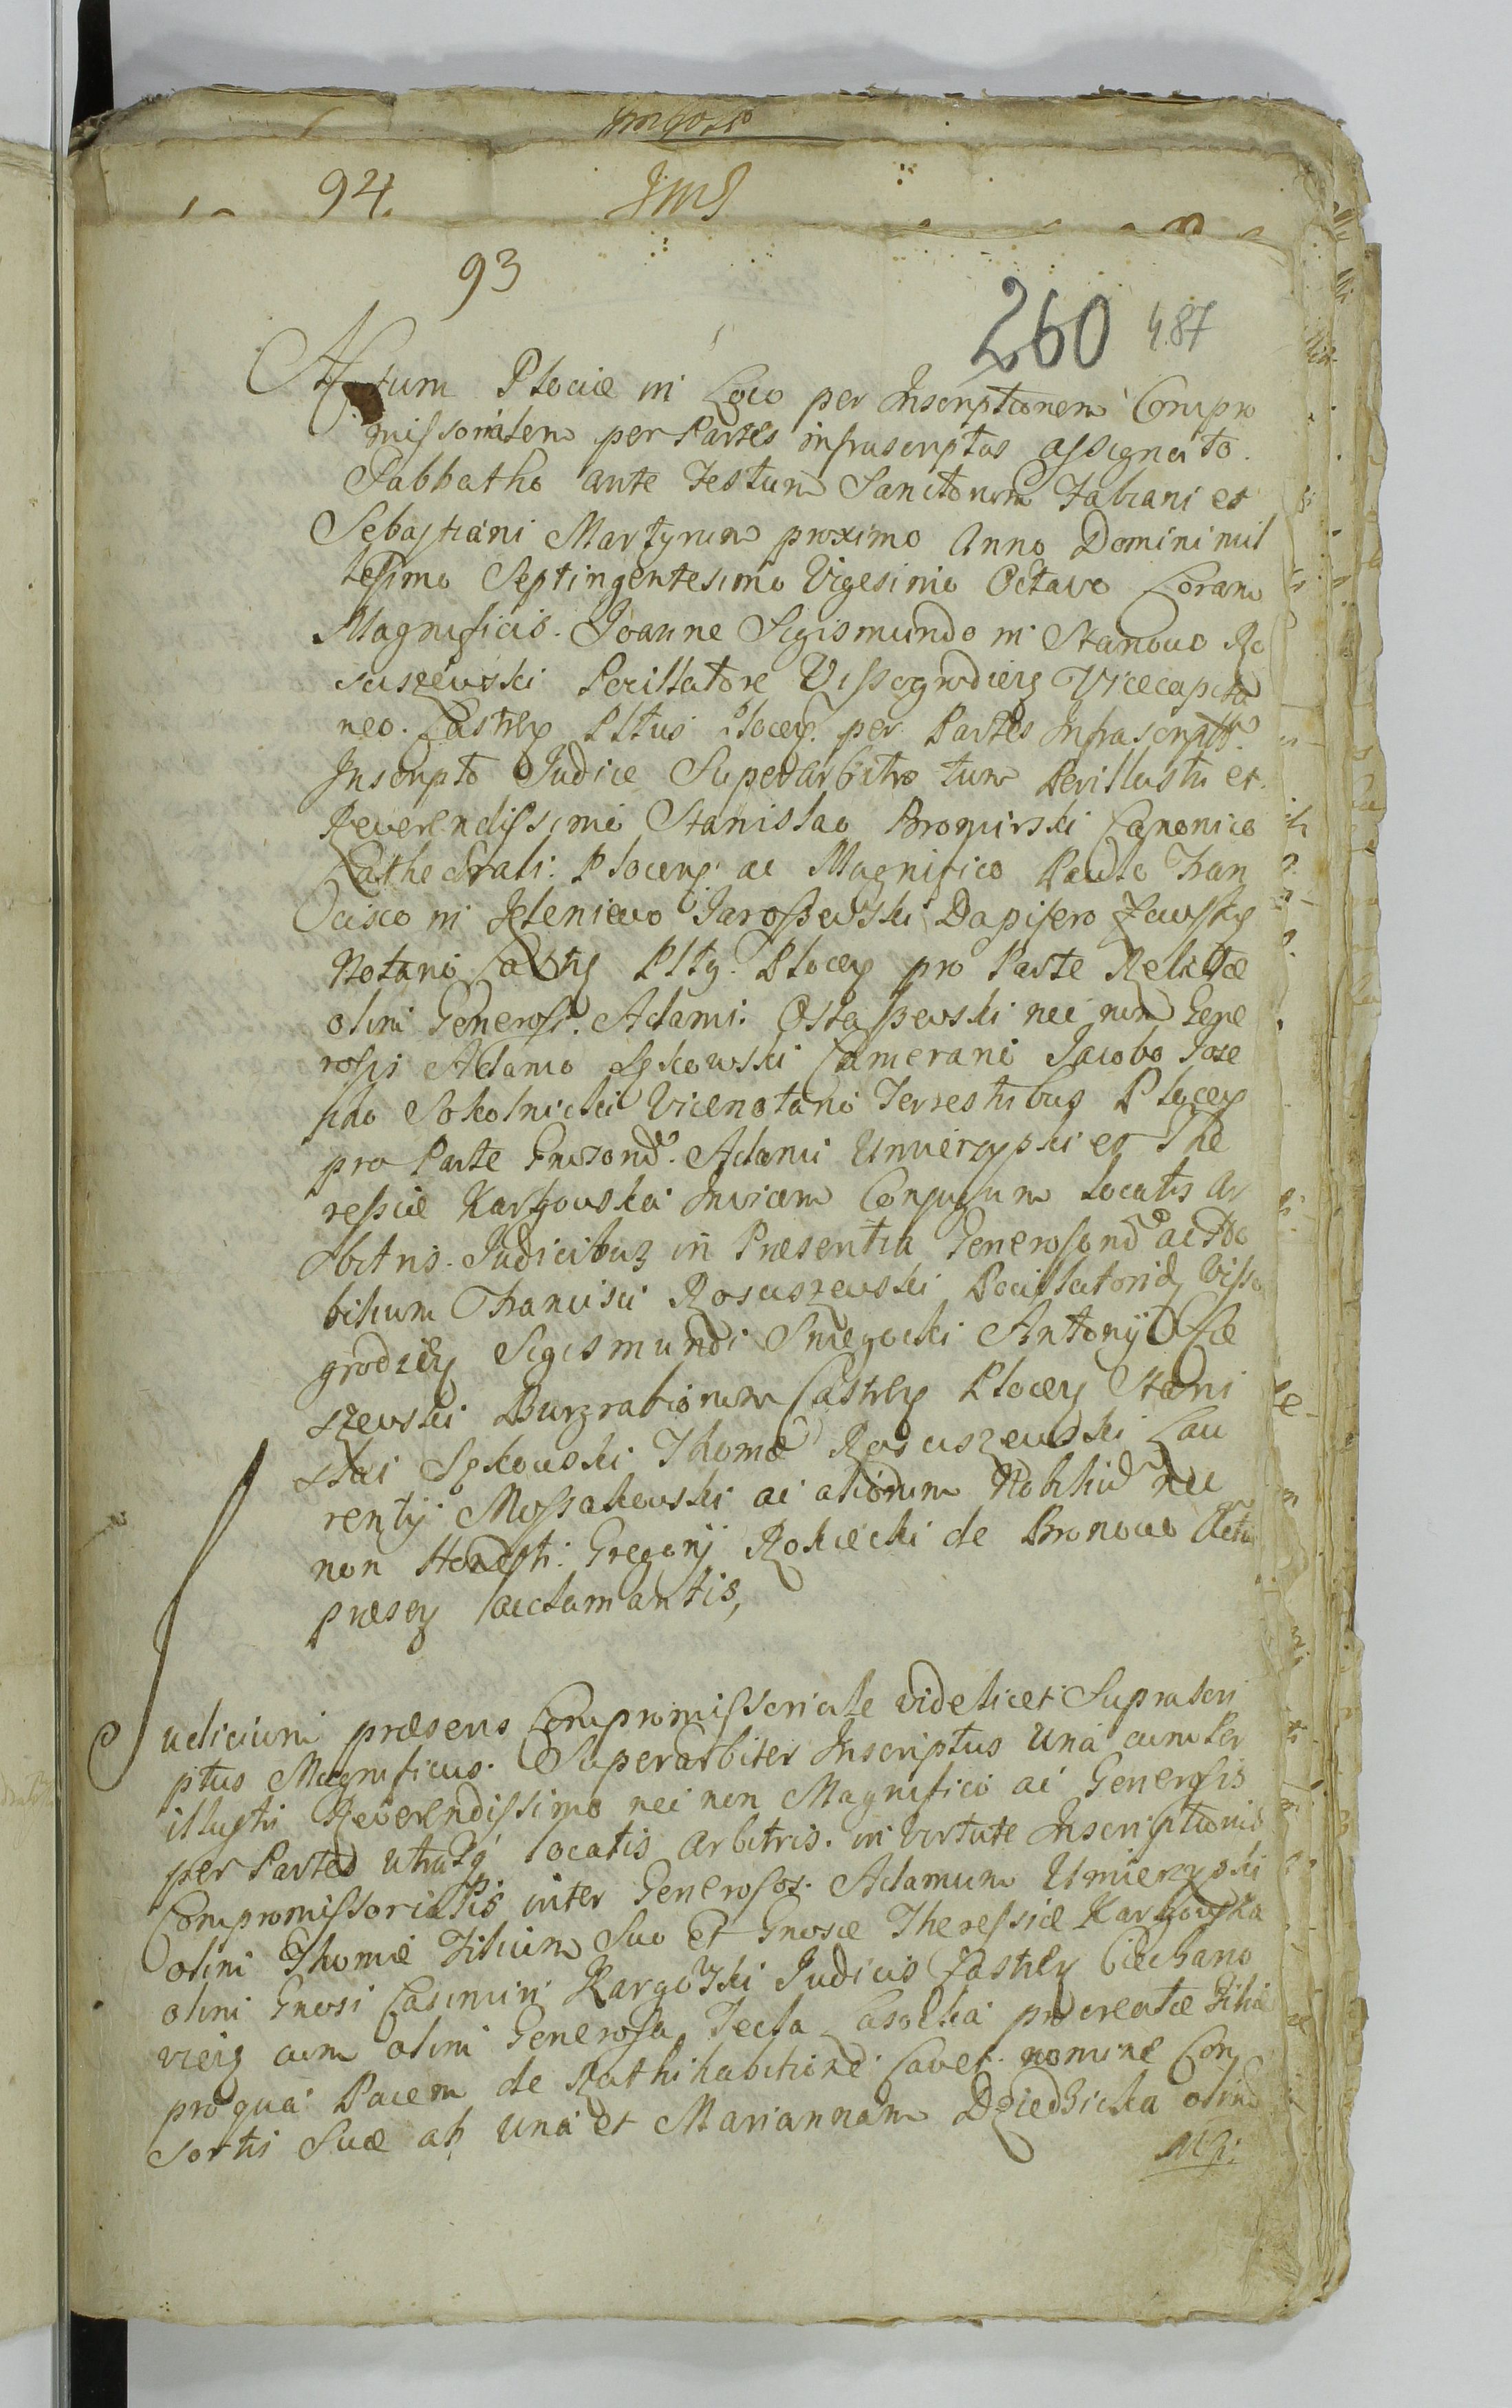 94.
93
260 487
Actum Plociæ in Loco per Inscriptionem Compro
missorialem per Partes infrascriptas assignato.
Sabbatho ante Festum Sanctorum Fabiani et
Sebastiani Martyrum proximo Anno Domini mil
lesimo Septingentesimo Vigesimo Octavo Coram
Magnificis. Joanne Sigismundo in Stanowo Ro
sciszewski Pocillatore Vissogrodien Vicecapita
neo. Castren Pltus Plocen. per Partes Infrascript
Inscripto Judice Superarbitro tum Perillustri et.
Reverendissimo Stanislao Bromirski Canonico
Cathedrali. Plocen ac Magnifico Paulo Fran
cisco in Jeleniewo Jaroszewski Dapifero
Notario Pltg. Plocen pro Parte Relictæ
olim Generosi. Adami. Ostaszewski nec non Gene
rosis Adamo Camerario Jacobo Jose
pho Sokolnicki Vicenotario Terrestribus Plocen
pro Parte Gnrsorum. Adami Umierzyski et The
ressiæ Kargowska Invicem Conjugum locatis Ar
bitris. Judicibus in Præsentia Generosorum ac No
bilium Francisci Rosciszewski Pocillatorid Visso
grodien Sigismundi Sniegocki Antonij
szewski Burgrabiorum Castren Plocen Stani
slai Thomæ Rosciszewski Lau
rentij Mossakowski ac aliorum Nobilium nec
non Honesti. Gregorij Rokicki de Bronowo Actu
præsen acclamantis,
Judicium præsens Compromissoriale videlicet Suprascri
ptus Magnificus. Superarbiter Inscriptus Una cum Per
illustri Reverendissimo nec non Magnifico ac Generosis
per Partes utrasq locatis Arbitris. in Virtute Inscriptionis
Compromissorialis inter Generosos. Adamum Umierzyski
olim Thomæ Filium Suo Et Gnrosæ Theressiæ Kargowska
olim Gnrosi Casimiri Kargowski Judicis Castren Ciechano
vien cum olim Generosa Tecla Lasocka procreatæ Filiæ
pro qua Pacem de Rathihabitione Cavet. nomine Con
sortis Suæ ab Una et Mariannam Dziedzicka olim